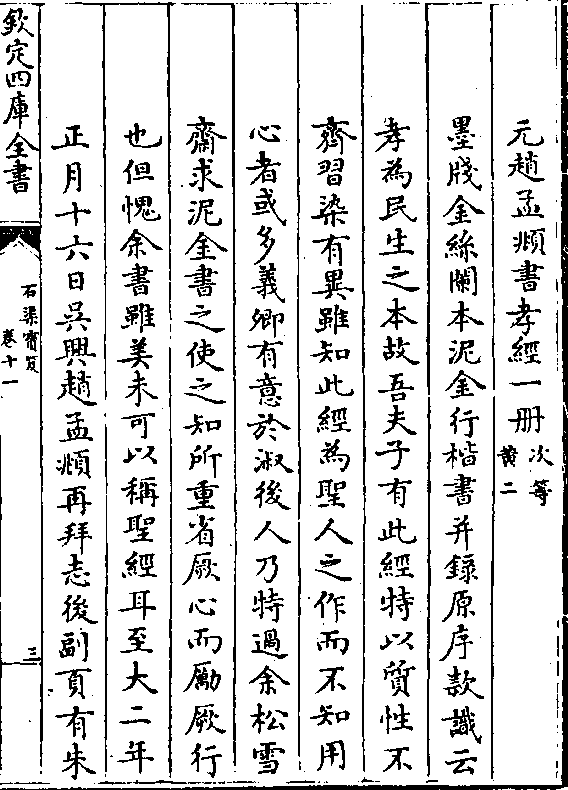 元趙孟頫書孝經一冊次等黄二
墨牋金絲闌本泥金行楷書并錄原序款識云
孝為民生之本故吾夫子有此經特以質性不
齊習染有異雖知此經為聖人之作而不知用
心者或多義卿有意於淑後人乃特過余松雪
齋求泥金書之使之知所重省厥心而勵厥行
也但愧余書雖美未可以稱聖經耳至大二年
正月十六日吳興趙孟頫再拜志後副頁有朱
欽定四庫全書
石渠寶笈
卷十一
三